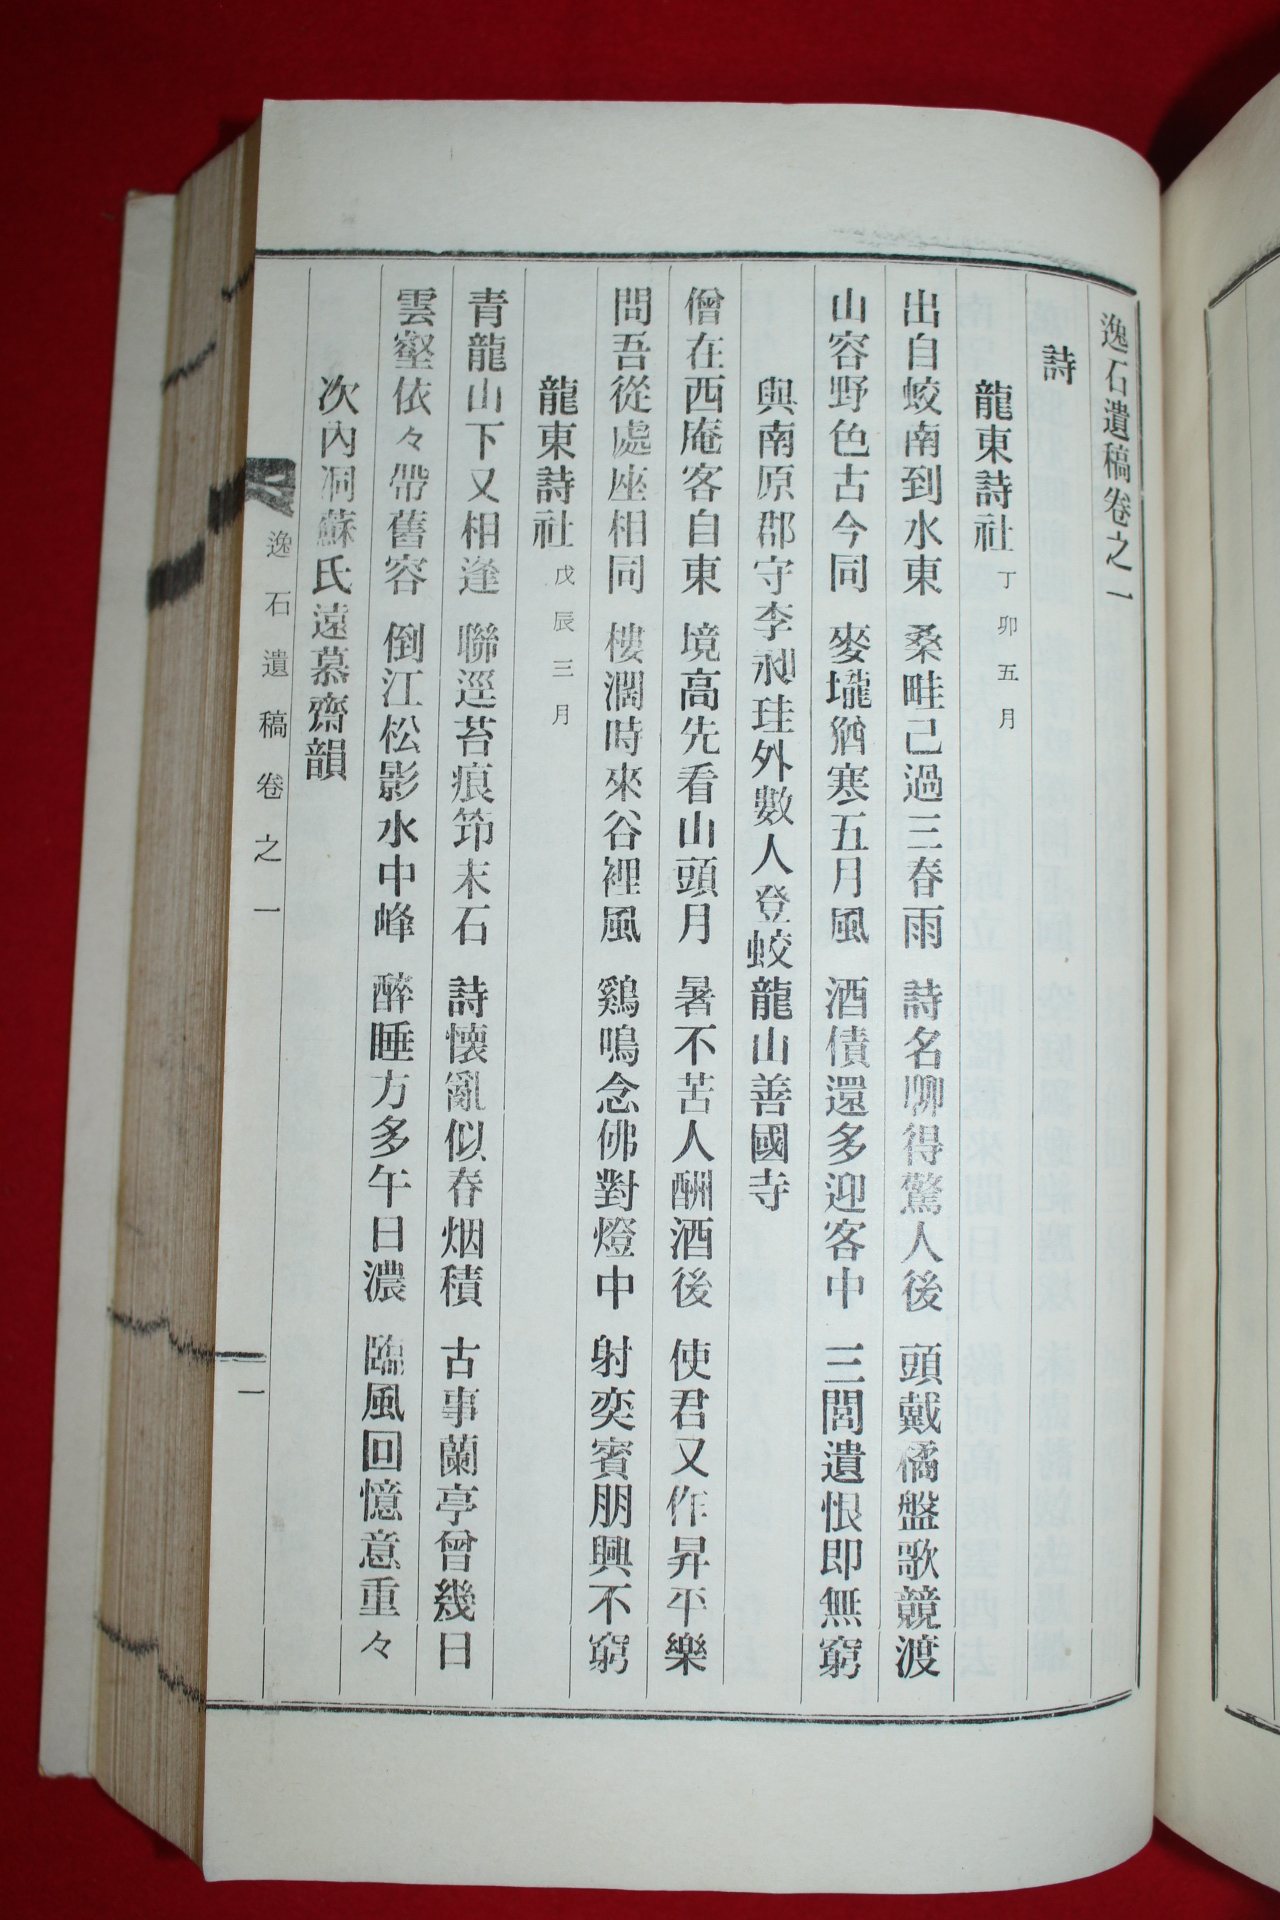 逸石遺稿卷之一
詩
龍東詩社 丁卯五月
出自蛟南到水東 桑畦已過三春雨 詩名聊得驚人後 頭戴橘盤歌競渡
山容野色古今同 麥壠猶寒五月風 酒債還多迎客中 三閭遺恨即無窮
與南原郡守李昶珪外數人登蛟龍山善國寺
僧在西庵客自東 境高先看山頭月 暑不苦人酬酒後 使君又作昇平樂
問吾從處座相同 樓濶時來谷裡風 鷄鳴念佛對燈中 射奕賓朋興不窮
龍東詩社 戊辰三月
青龍山下又相逢 聯逕苔痕笻末石 詩懷亂似春烟積 古事蘭亭曾幾日
雲壑依々帶舊容 倒江松影水中峰 醉睡方多午日濃 臨風回憶意重々
次內洞蘇氏遠慕齋韻
逸石遺稿卷之一
一